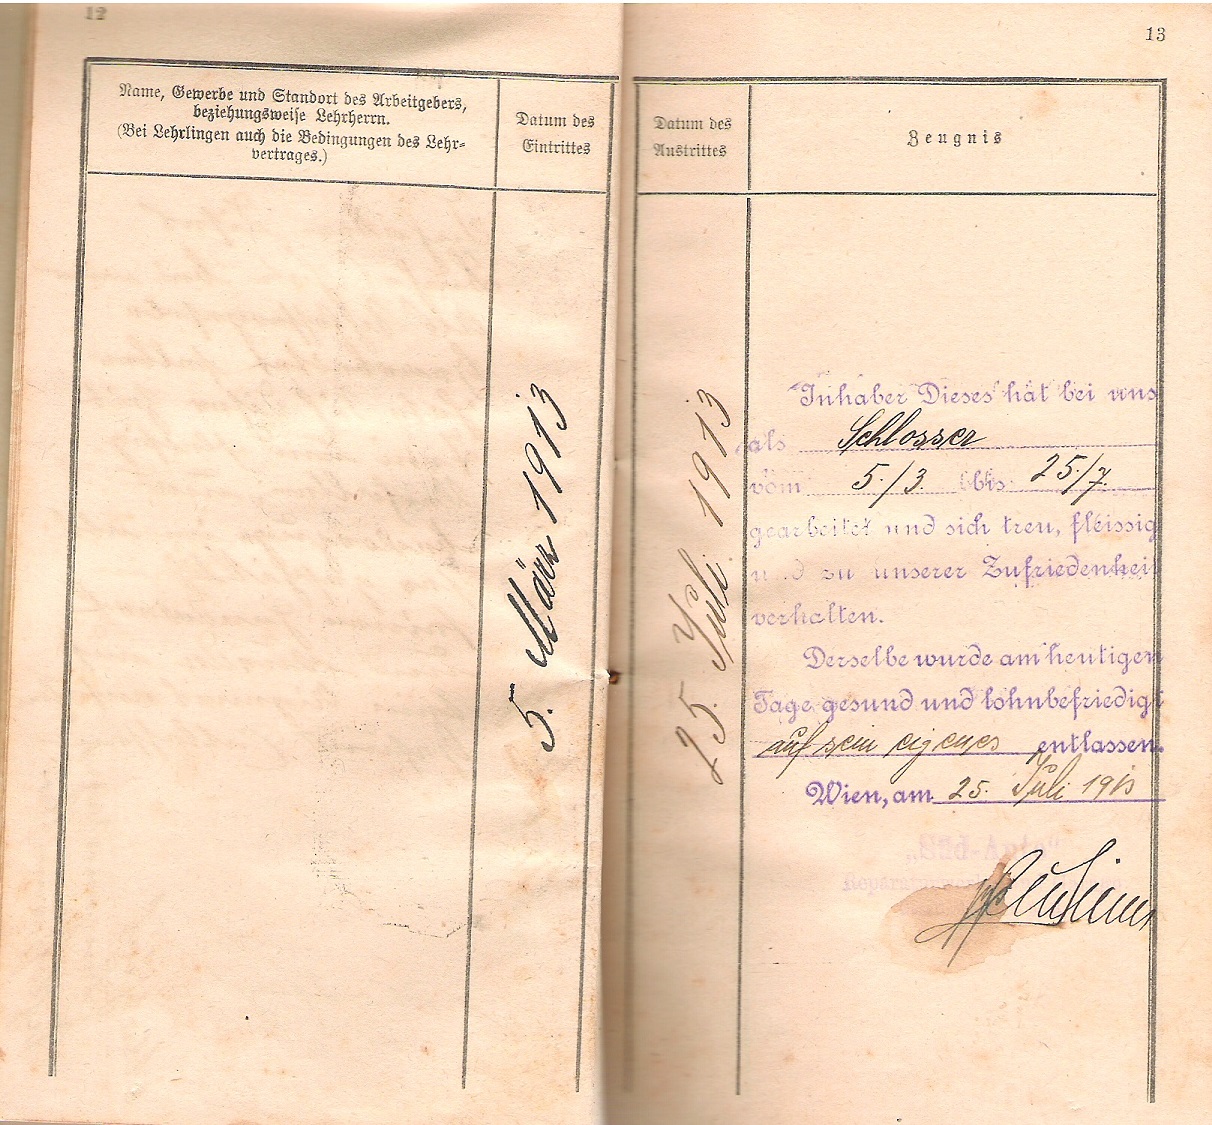 12
Name, Gewerbe und Standort des Arbeitgebers,
beziehungsweise Lehrherrn.
(Bei Lehrlingen auch die Bedingungen des Lehr-
vertrages.)
Datum des
Eintrittes
5. März 1913
13
Datum des
Austrittes
Zeugnis
25. Juli 1913
Inhaber Dieses hat bei uns
als Schlosser
vom 5./3. bis 25/7.
gearbeitet und sich treu, fleissig
und zu unserer Zufriedenheit
verhalten.
Derselbe wurde am heutigen
Tage gesund und lohnbefriedigt
auf sein eigenes entlassen.
Wien, am 25. Juli 1913
„Süd-Auto"